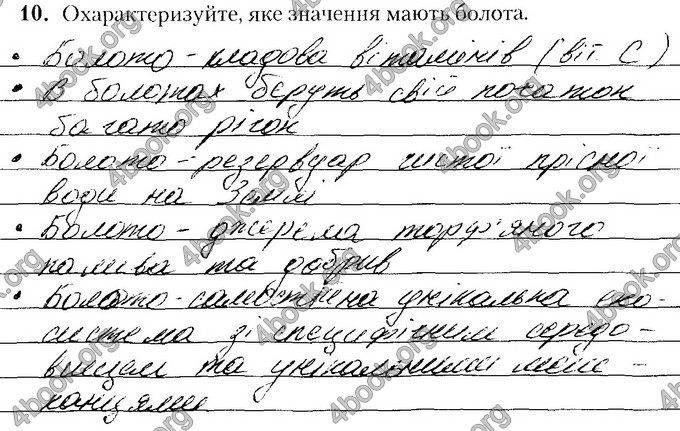 10. Охарактеризуйте, яке значення мають болота.
• Болото - кладова вітамінів (віт. С)
• В болотах беруть свій початок
багато річок
• Болото - резервуар чистої прісної
води на Землі
• Болото - джерела торф'яного
палива та добрив
• Болото - самостійна унікальна еко-
система зі специфічним середо-
вищем та унікальними меш-
канцями
4book.org